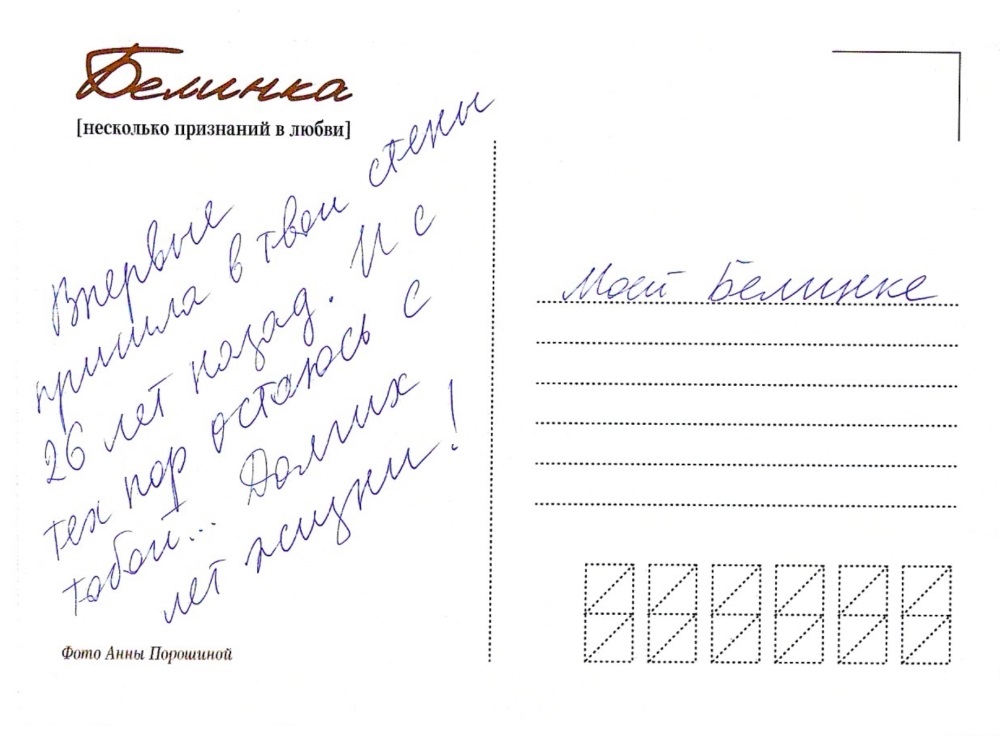 Белинка
[несколько признаний в любви]
Впервые
пришла в твои стены
26 лет назад. И с
тех пор остаюсь с
тобой... Долгих
лет жизни!
Фото Анны Порошиной
Моей Белинке